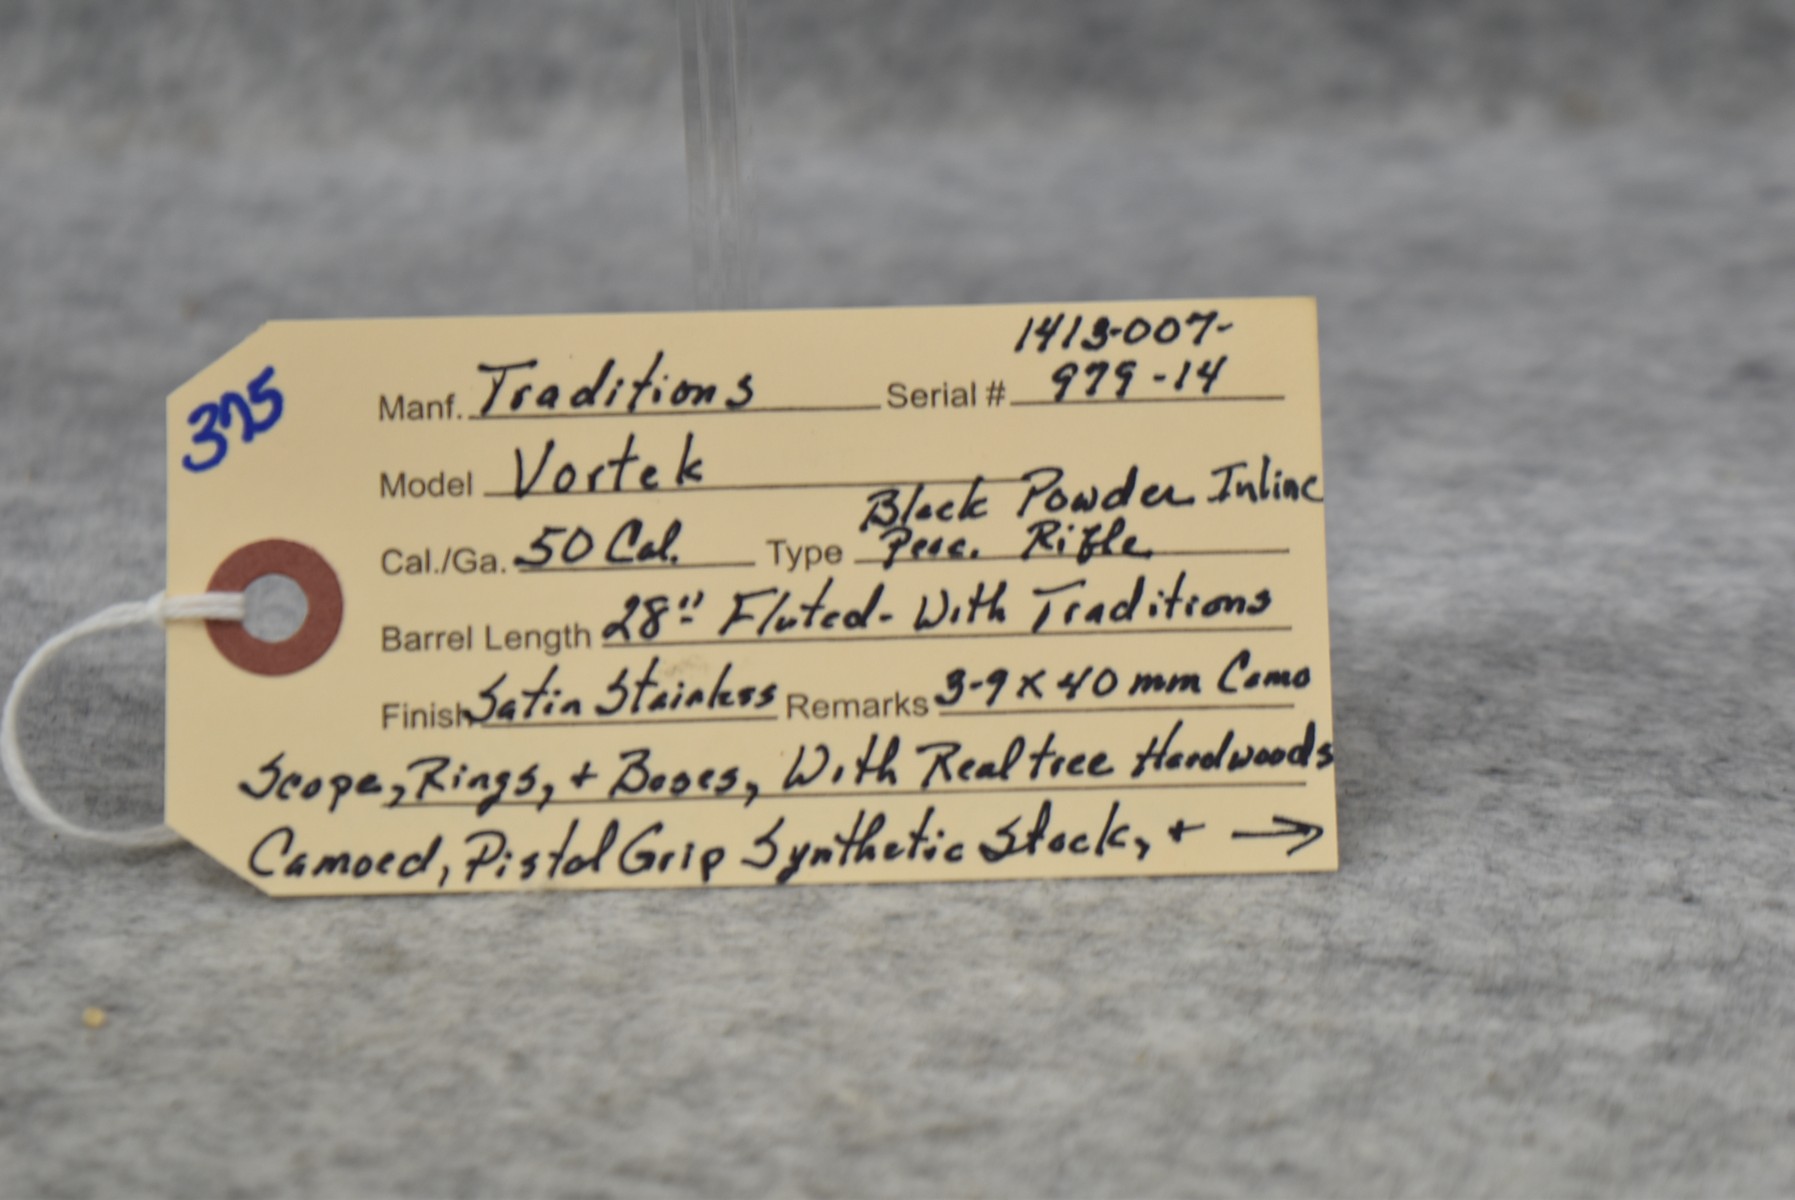 375
1413-007-
Manf. Traditions Serial # 979-14
Model Vortek
Black Powder Inline
Cal./Ga. 50 Cal. Type Perc. Rifle
Barrel Length 28" Fluted- With Traditions
Finish Satin Stainless Remarks 3-9 x 40 mm Camo
Scope, Rings, + Bases, With Realtree Hardwoods
Camoed, Pistol Grip Synthetic Stock, + →